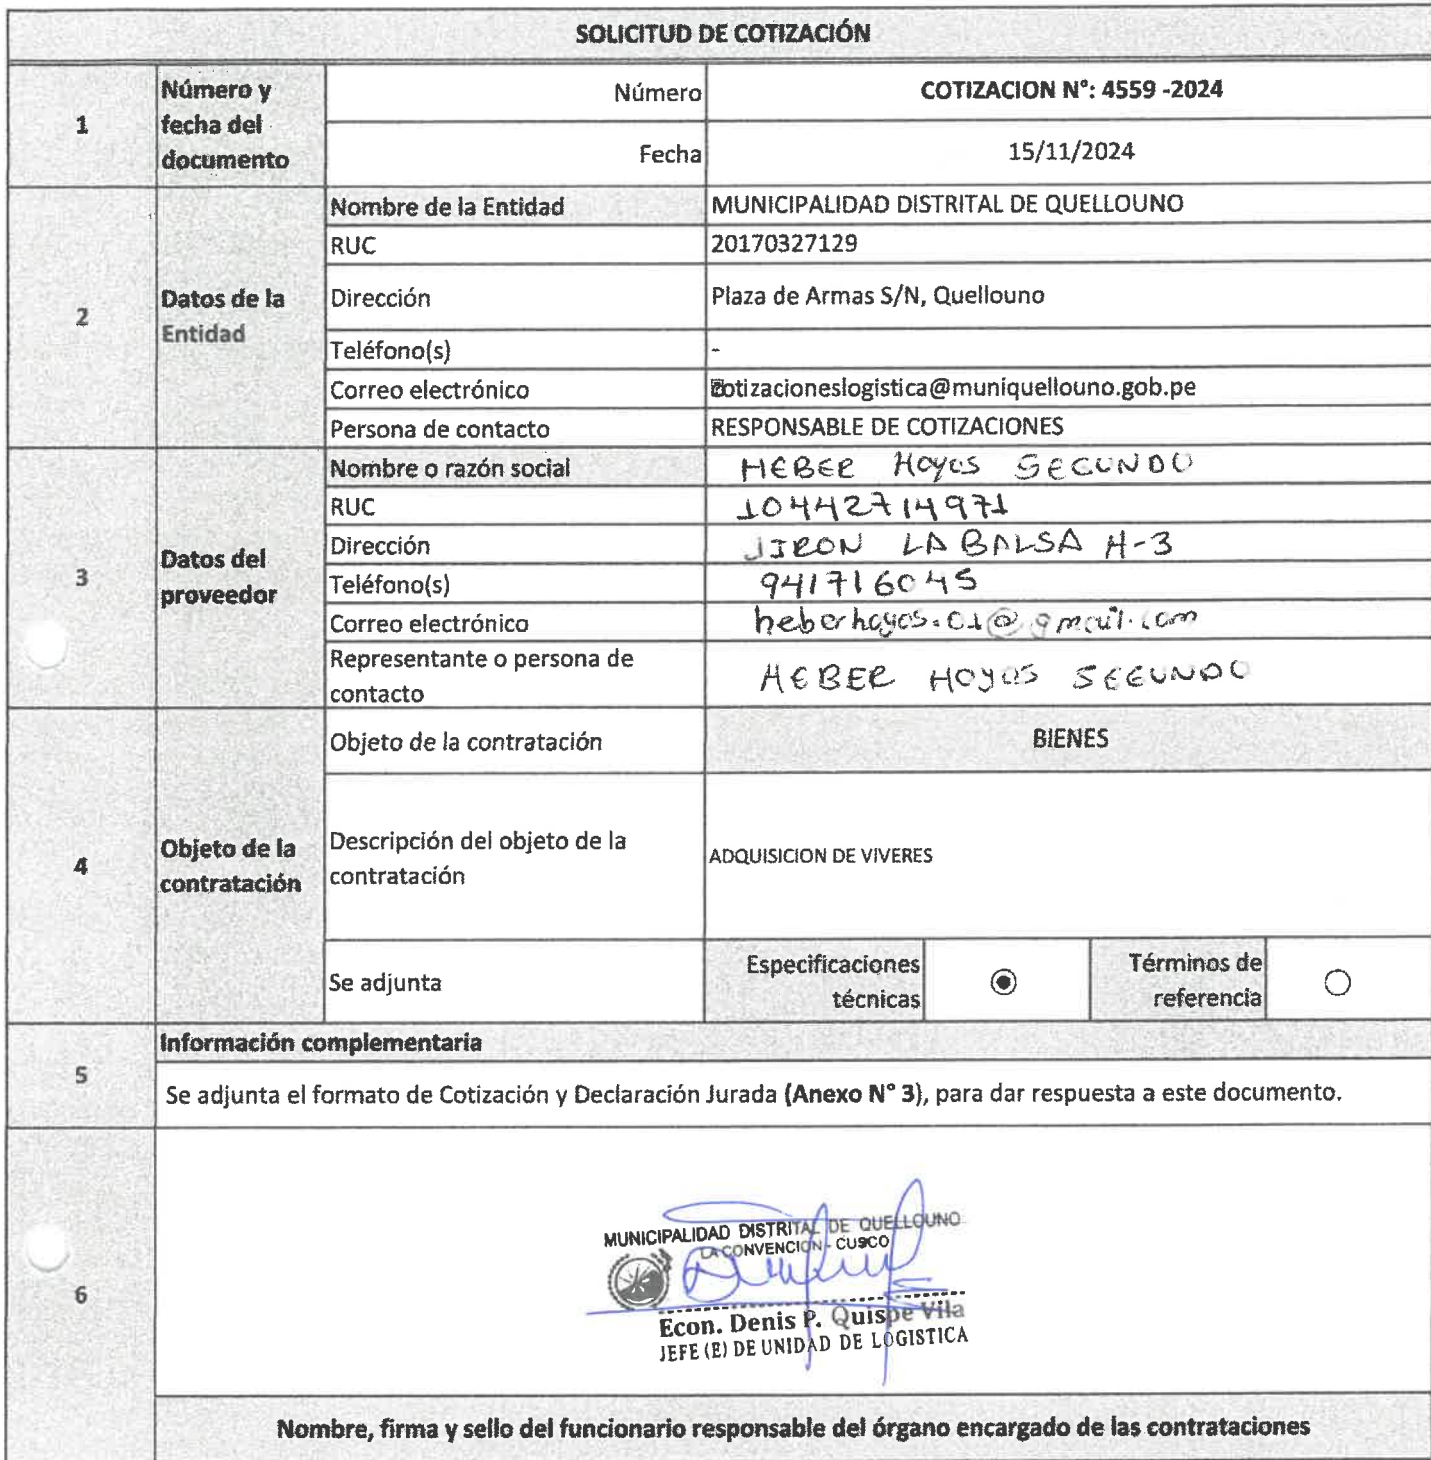 SOLICITUD DE COTIZACIÓN
1
Número y
fecha del
documento
Número
COTIZACION N°: 4559 -2024
Fecha
15/11/2024
2
Datos de la
Entidad
Nombre de la Entidad
MUNICIPALIDAD DISTRITAL DE QUELLOUNO
RUC
20170327129
Dirección
Plaza de Armas S/N, Quellouno
Teléfono(s)
-
Correo electrónico
cotizacioneslogistica@muniquellouno.gob.pe
Persona de contacto
RESPONSABLE DE COTIZACIONES
3
Datos del
proveedor
Nombre o razón social
HEBER Hoyos SEGUNDO
RUC
10442714971
Dirección
JIRON LA BALSA H-3
Teléfono(s)
941716045
Correo electrónico
heberhoyos.01@gmail.com
Representante o persona de
contacto
HEBER HOYOS SEGUNDO
4
Objeto de la
contratación
Objeto de la contratación
BIENES
Descripción del objeto de la
contratación
ADQUISICION DE VIVERES
Se adjunta
Especificaciones
técnicas
Términos de
referencia
5
Información complementaria
Se adjunta el formato de Cotización y Declaración Jurada (Anexo N° 3), para dar respuesta a este documento.
6
MUNICIPALIDAD DISTRITAL DE QUELLOUNO
LA CONVENCION - CUSCO
Econ. Denis P. Quispe Vila
JEFE (E) DE UNIDAD DE LOGISTICA
Nombre, firma y sello del funcionario responsable del órgano encargado de las contrataciones